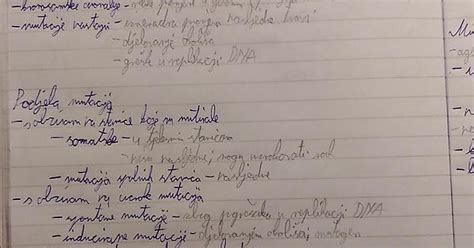 - mutacije nastaju - iznenadna promjena nasljedne tvari
- djelovanje okoliša
- greške u replikaciji DNA
Podjela mutacija
- s obzirom na stanice koje su mutirale
- somatske - u tjelesnim stanicama
- nisu nasljedne, mogu uzrokovati rak
- mutacija spolnih stanica - nasljedne
- s obzirom na uzrok mutacija
- spontane mutacije - zbog pogrešaka u replikaciji DNA
- inducirane mutacije - djelovanjem okolišnj mutagen